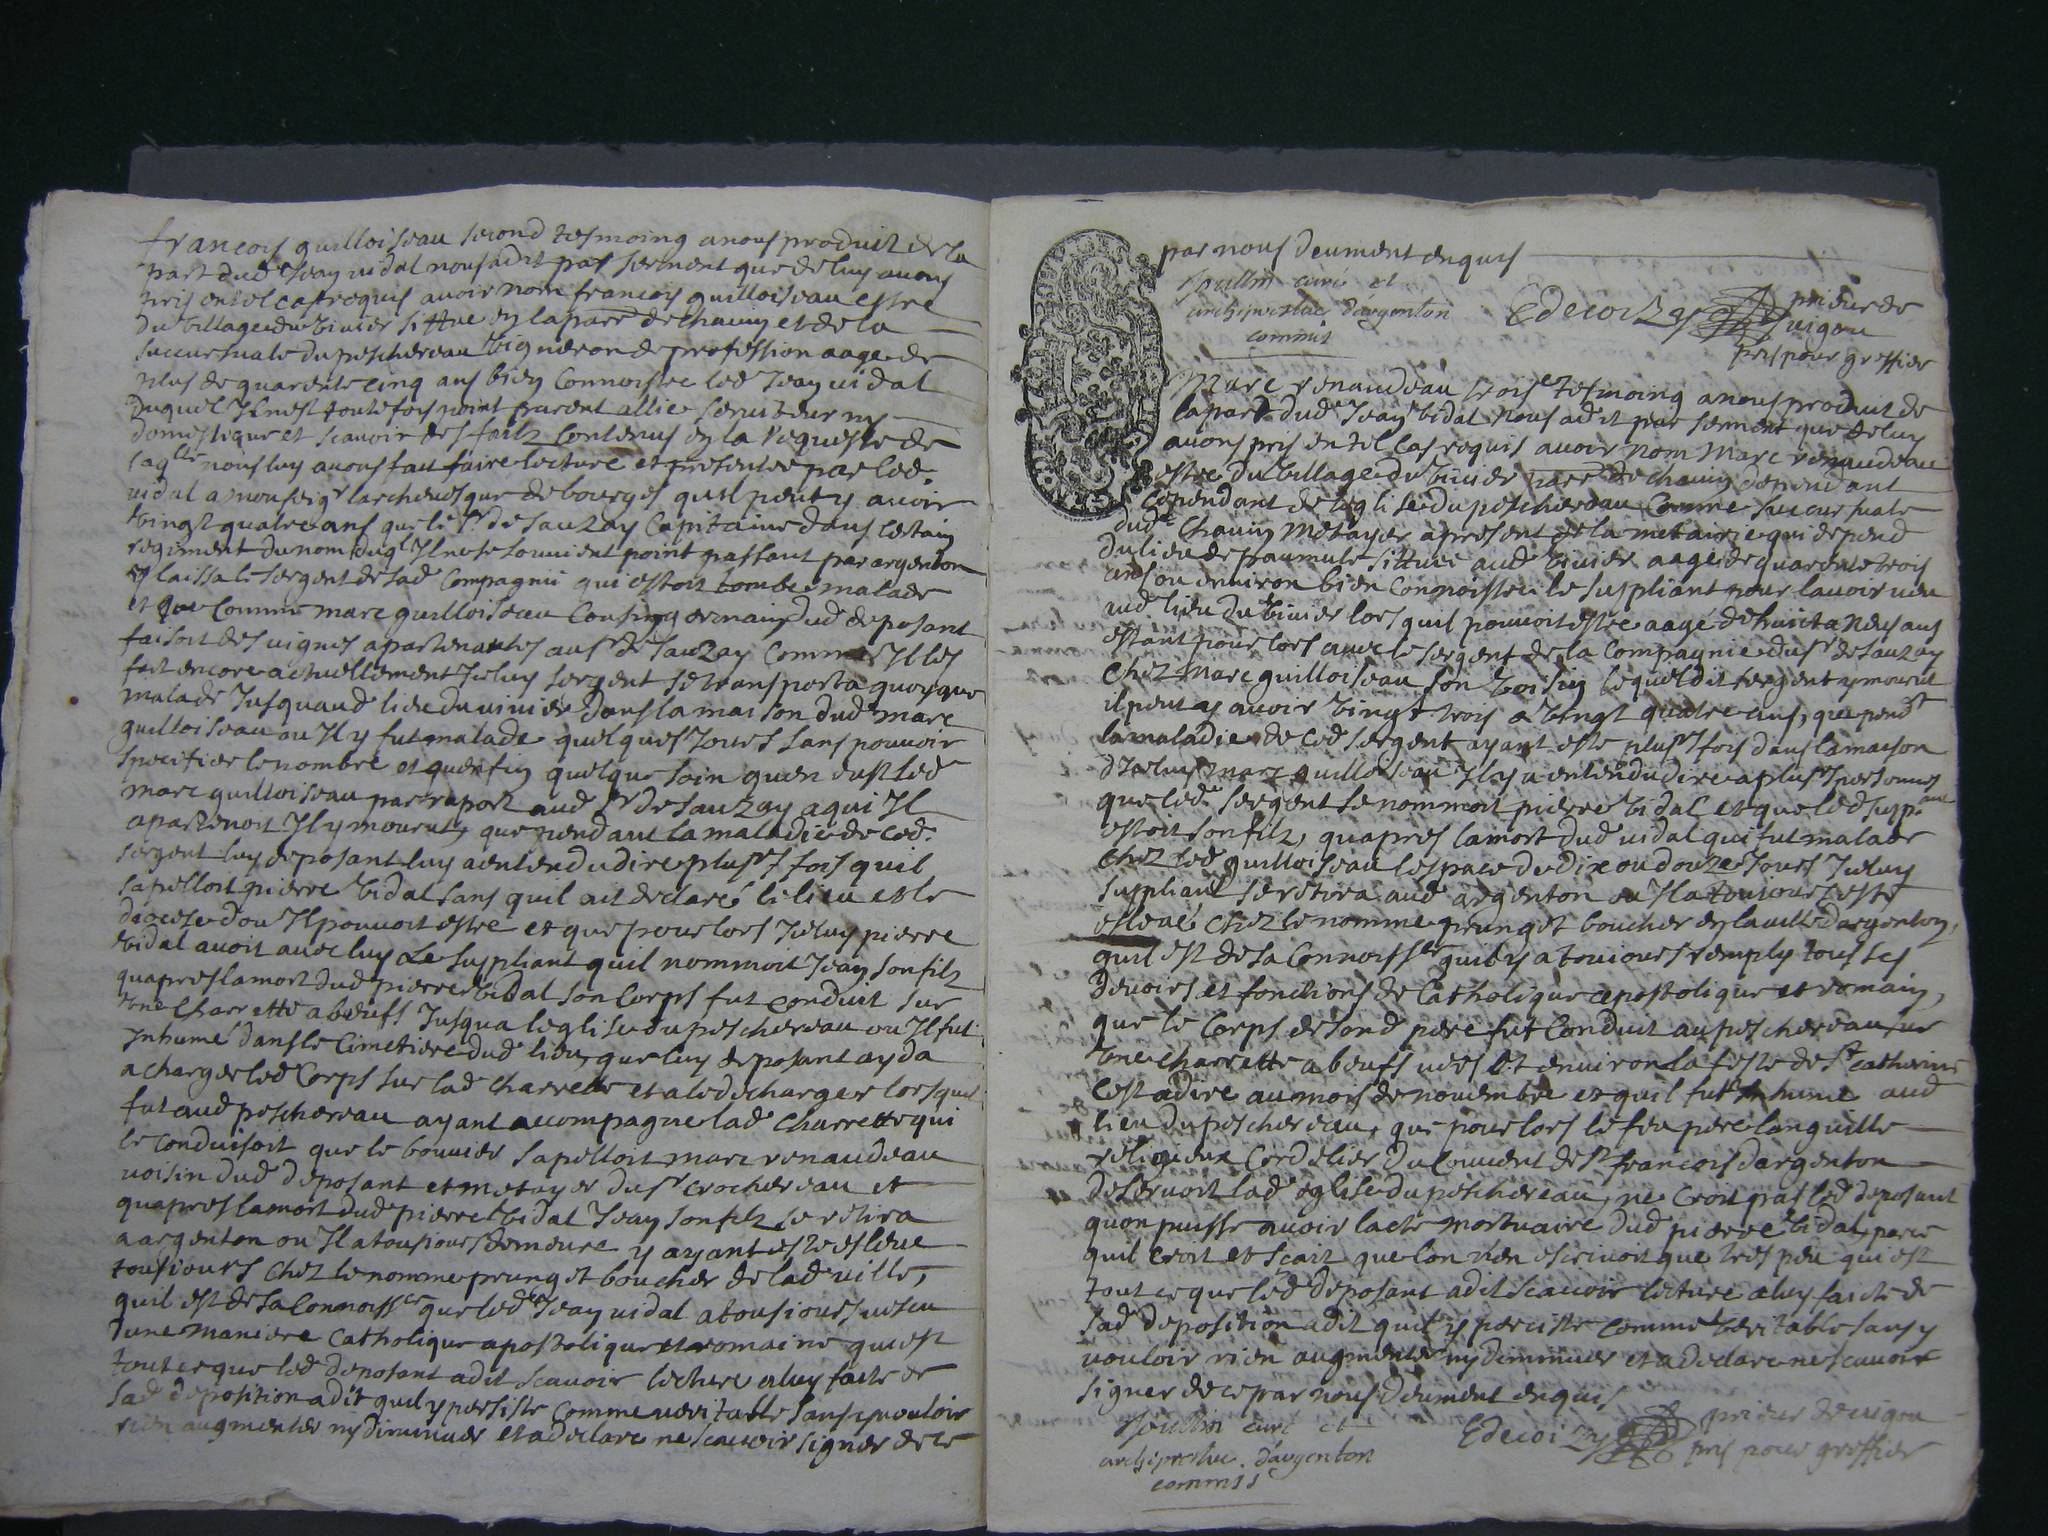 francois guilloiseau second tesmoing a nous produit de la
part dud Jean vidal nous a dit par serment que de luy avons
pris en tel cas requis avoir nom francois guilloiseau estre
du village du vivier sittue en la parr de chavin et de la
succursuale du peschereau vigneron de profession aage de
plus de quarente cinq ans bien connoistre led Jean vidal
duquel Il nest toutefois point parent allie serviteur ny
domestique et scavoir des faitz contenus en la requeste de
laqlle nous luy avons fait faire lecture et presentee par led
vidal a monseigr larchevesque de bourges quil peut y avoir
vingt quatre ans que le Sr de sauzay capitaine dans certain
regiment du nom duql Il ne se souvient point passant par argenton
y laissa le sergent de sad compagnie qui estoit tombe malade
et que comme marc guilloiseau cousin germain dud deposant
faisoit des vignes apartenantes au sr de sauzay comme Il les
fait encore actuellement Iceluy sergent se transporta quoyque
malade Jusquaud lieu du vivier dans la maison dud marc
guilloiseau ou Il y fut malade quelques Jours sans pouvoir
specifier le nombre et quenfin quelque soin quen eust led
marc guilloiseau par raport aud Sr de sauzay a qui Il
apartenoit Il y mourut, que pendant la maladie de ced
sergent luy deposant luy a entendu dire plusrs fois quil
sapelloit pierre vidal sans quil ait declaré le lieu et le
diocese dou Il pouvoit estre et que pour lors Iceluy pierre
vidal avoit avec luy le suppliant quil nommoit Jean son filz
quapres la mort dud pierre vidal son corps fut conduit sur
une charrette a boeufs Jusqua leglise du peschereau ou Il fut
Inhumé dans le cimetiere dud lieu, que luy deposant ayda
a charger led corps sur lad charrette et a le decharger lorsquil
fut aud peschereau ayant accompagne lad charrette qui
le conduisoit que le bouvier sapelloit marc renaudeau
voisin dud deposant et metayer du sr crochereau et
quapres la mort dud pierre vidal Jean son filz se retira
a argenton ou Il a tousiours demeure y ayant este esleve
tousiours chez le nomme prunget boucher de lad ville,
quil est de sa connoissce que led Jean vidal a tousiours vescu
dune maniere catholique apostolique et romaine qui est
tout ce que led deposant a dit scavoir lecture a luy faite de
sad deposition a dit quil y persiste comme veritable sans y vouloir
rien augmenter ny diminuer et a declare ne scavoir signer de ce
par nous deument enquis
curé et
archiprestre dargenton
commis
Edecoizay prieur de
vigou
pris pour greffier
Marc renaudeau troise tesmoing a nous produit de
la part dud Jean vidal nous a dit par serment que de luy
avons pris en tel cas requis avoir nom Marc renaudeau
estre du village du vivier parr de chavin dependant
cependant de leglise du peschereau comme succursuale
dud chavin metayer a present de la metairie qui depend
du lieu de paumule sittuée aud vivier aagé de quarente trois
ans ou environ bien connoistre le suppliant pour lavoir veu
aud lieu du vivier lors quil pouvoit estre aagé de huict a neuf ans
estant pour lors avec le sergent de la compagnie du sr de sauzay
chez marc guilloiseau son voisin lequel dit sergent y mourut
il peut y avoir vingt trois a vingt quatre ans, que pendt
la maladie de ced sergent ayant este plusrs fois dans la maison
dIceluy marc guilloiseau Il y a entendu dire a plusrs personnes
que led sergent se nommoit pierre vidal et que led supant
estoit son filz, quapres la mort dud vidal qui fut malade
chez led guilloiseau lespace de dix ou douze Jours Iceluy
suppliant se retira aud argenton ou Il a tousiours esté
eslevé chez le nomme prunget boucher en la ville dargenton,
quil est de sa connoissce quil y a tousiours remply tous ses
devoirs et fonctions de catholique apostolique et romain,
que le corps de sond pere fut conduit au peschereau sur
une charrette a boeufs vers et environ la feste de Ste catherine
cest a dire au mois de novembre et quil fut Inhume aud
lieu du peschereau, que pour lors le feu pere languille
religieux cordelier du couvent de st francois dargenton
deservoit lad eglise du peschereau, ne croit pas led deposant
quon puisse avoir lacte mortuaire dud pierre vidal parce
quil croit et scait que lon nen escrivoit que tres peu qui est
tout ce que led deposant a dit scavoir lecture a luy faicte de
sad deposition a dit quil y perciste comme veritable sans y
vouloir rien augmenter ny diminuer et a declare ne scavoir
signer de ce par nous deument enquis
curé et
archiprestre dargenton
commis
Edecoizay prieur de vigou
pris pour greffier